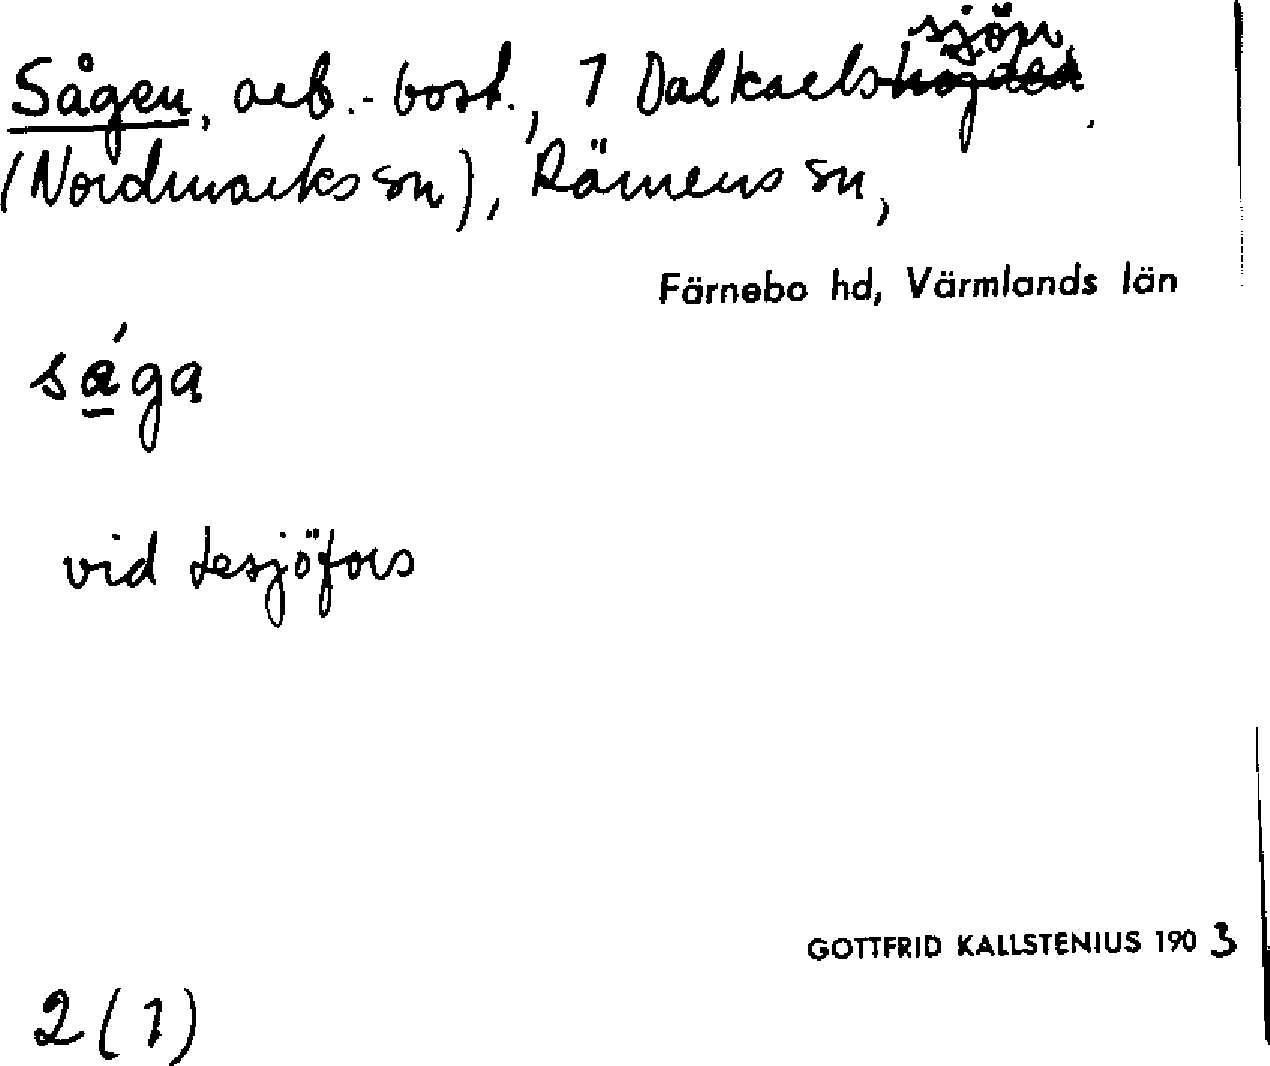 sjön
Sågen, arb.-bost., 1 Dalkarlshöjden.
(Nordmarks sn), Rämens sn,
Färnebo hd, Värmlands län
sága
vid Lesjöfors
GOTTFRID KALLSTENIUS 1903
2 (1)